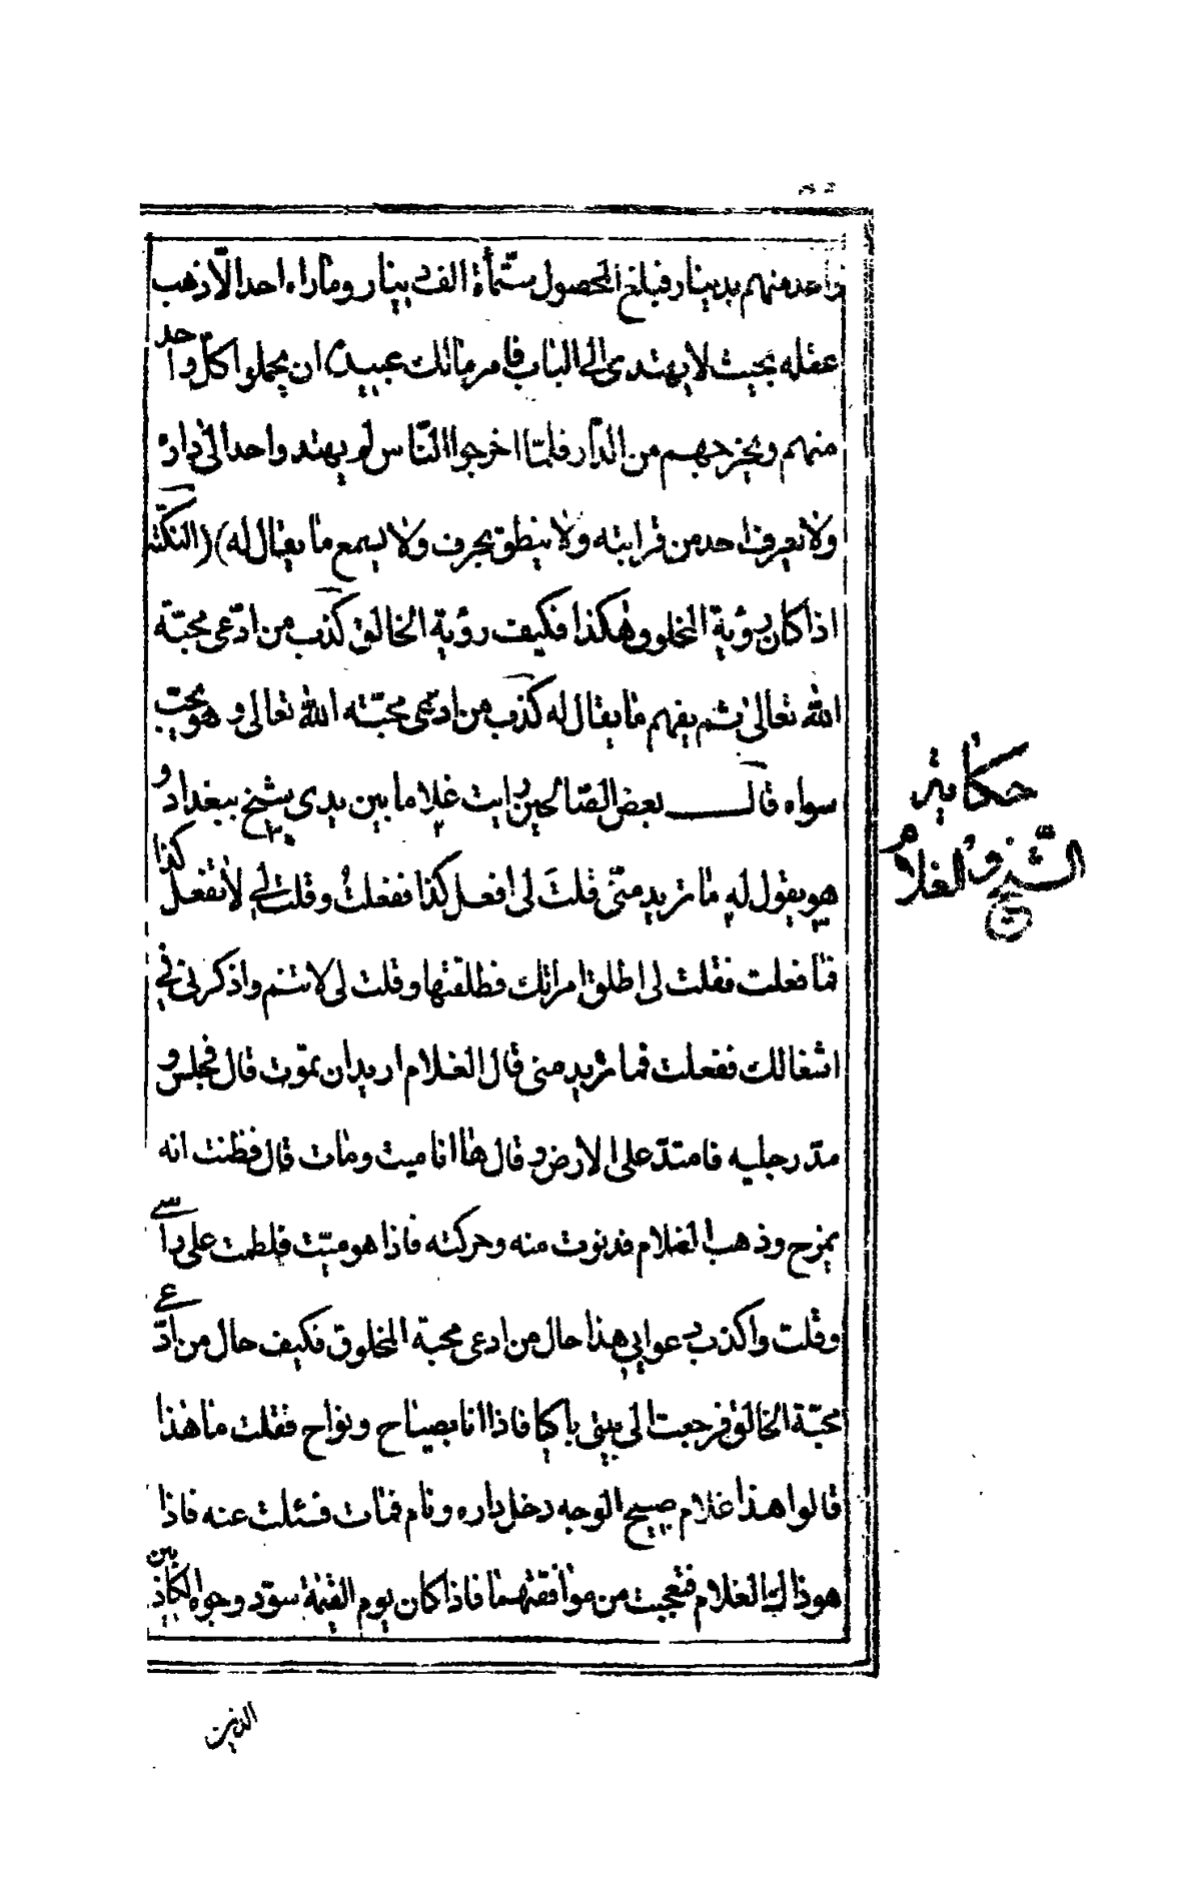 واحد منهم بدينار فبلغ المحصول ستّمأة الف دينار وماراه احد الّا ذهب
عقله بحيث لا يهتدى الى الباب فامر مالك عبيده ان يحملوا كلّ واحد
منهم ويخرجهم من الدّار فلمّا اخرجوا النّاس لم يهتد واحد الى داره
ولا تعرف احد من قرابته ولا ينطق بحرف ولا يسمع ما يقال له) (النّكتة
اذا كان رؤية المخلوق هكذا فكيف رؤية الخالق كذب من ادّعى محبّة
الله تعالى ثم يفهم ما يقال له كذب من ادّعى محبّته الله تعالى وهو يحبّ
سواه قال بعض الصّالحين رايت غلاما بين يدى شيخ ببغداد و
هو يقول له ما تريد منّى قلتَ لى افعل كذا ففعلتُ وقلت لي لا تفعل كذا
فما فعلت فقلت لى اطلق امراتك فطلقتها وقلت لى لا تنم واذكرنى في
اشغالك ففعلت فما تريد منى قال الغلام اريد ان تموت قال فجلس و
مدّ رجليه فامتدّ على الارض و قال ها انا ميت ومات قال فظنت انه
يمزح وذهب الغلام فدنوت منه وحركته فاذا هو ميّت فلطمت على راسے
وقلت واكذب دعوايي هذا حال من ادعى محبة المخلوق فكيف حال من ادّعے
محبّة الخالق فرجعت الى بيتى باكيا فاذا انا بصياح ونواح فقلت ما هذا
قالوا هذا غلام صبيح الوجه دخل داره ونام فمات فسئلت عنه فاذا
هو ذالك الغلام فتعجبت من موافقتهما فاذا كان يوم القيمة سوّد وجوه الكاذبين
الذين
حكاية
الشّيخ والغلام